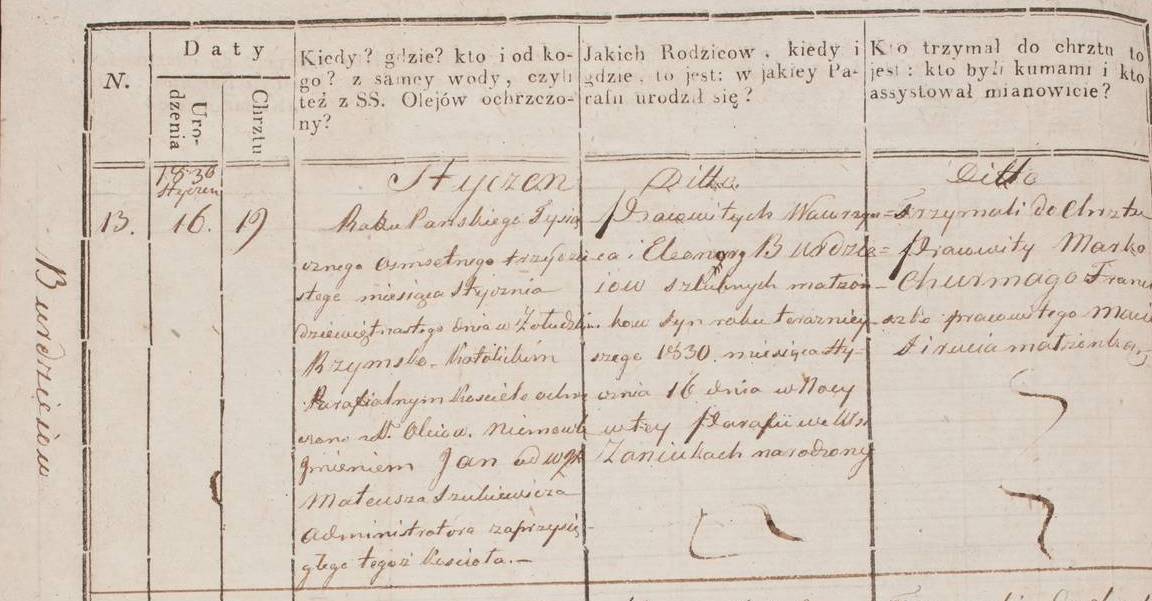 N.
Daty
Uro-
dzenia
Chrztu
Kiedy? gdzie? kto i od ko-
go? z samey wody, czyli
też z SS. Olejów ochrzczo-
ny?
Jakich Rodzicow, kiedy i
gdzie, to jest: w jakiey Pa-
rafii urodził się?
Kto trzymał do chrztu to
jest: kto byli kumami i kto
assystował mianowicie?
1830
Styczen
13.
16.
19
Burdziciow
Styczen
Roku Pańskiego Tysią
cznego osmsetnego trzydzie
stego miesiąca Stycznia
dziewiętnastego dnia w Żołudzk
Rzymsko-Katolickim
Parafialnym Kosciele ochrz
czono Niemowle
Jmieniem Jan od WJX
Mateusza Szukiewicza
Administratora zaprzysię-
głego tegoż Kościoła.—
Ditto
Pracowitych Wawrzyn=
ca i Eleonory Burdzic=
iow szlubnych małżon-
kow syn roku terazniey-
szego 1830 miesiąca Sty=
cznia 16 dnia w Nocy
w tey Parafii we Wsi
Zaniukach narodzony
Ditto
Trzymali do Chrztu
Pracowity Marko
z Franci
szko pracowitego Maci
małżonką